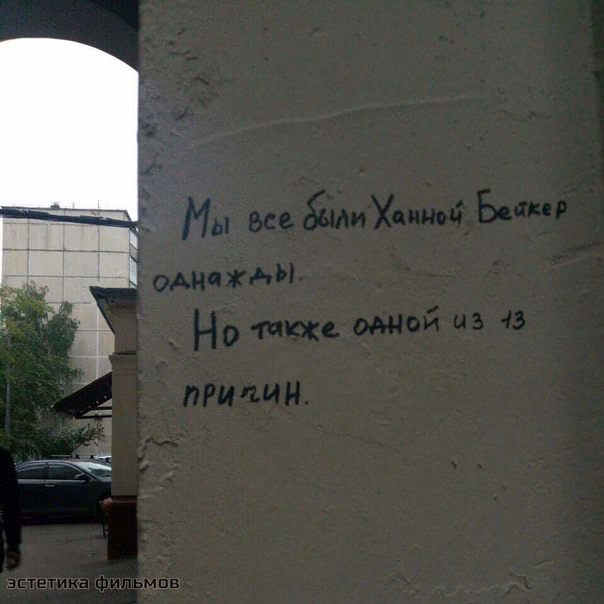 Мы все были Ханной Бейкер
однажды.
Но также одной из 13
причин.
эстетика фильмов